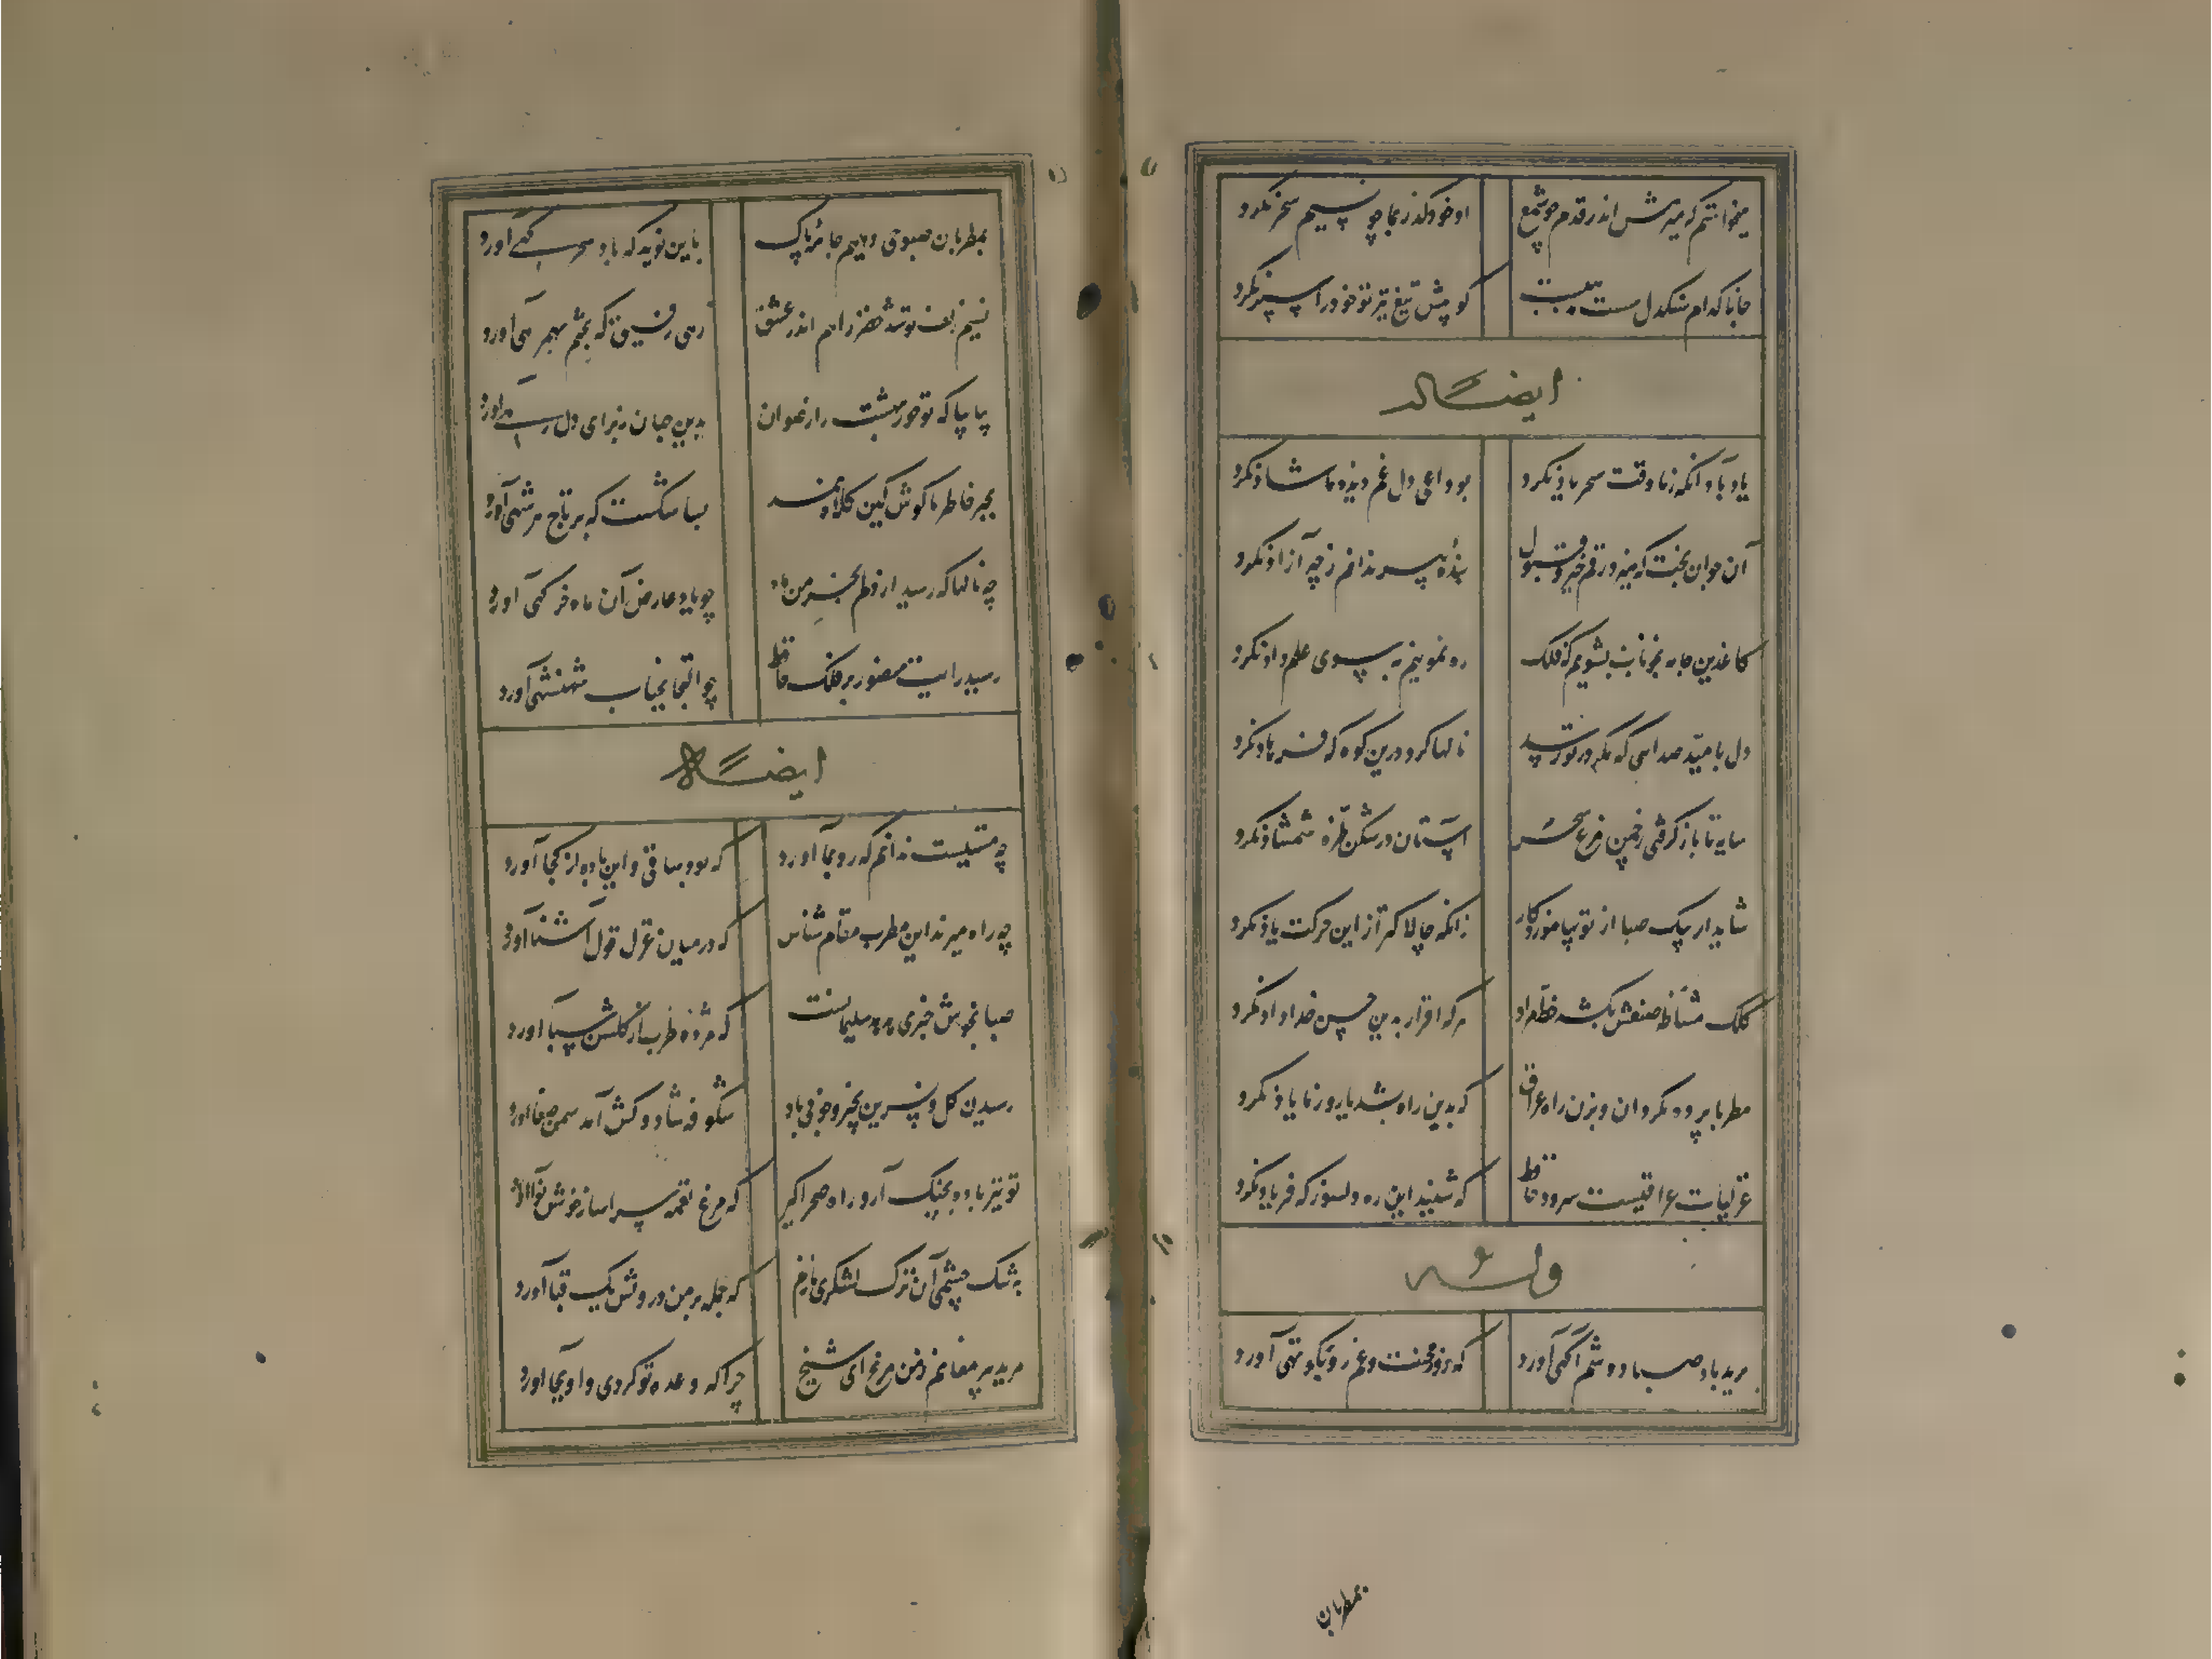 میخواستم که میرمش اندر قدم چو شمع
او خود گذر بما چو نسیم سحر نکرد
جانا کدام سنگدل سست
کو پیش تیغ تیز تو خود را سپر نکرد
ایضاً له
یاد باد آنکه ز ما وقت سحر یاد نکرد
بوداعی دل غم دیده ما شاد نکرد
آن جوان بخت که میزد رقم خیر و قبول
بنده پیر ندانم ز چه آزاد نکرد
کاغذین جامه بخونابه بشویم که فلک
ره نمونیم به سوی علم داد نکرد
دل بامید صدایی که مگر در تو رسد
نالها کرد درین کوه که فرهاد نکرد
سایه تا باز گرفتی ز چمن مرغ سحر
آشیان در شکن طره شمشاد نکرد
شاید ار پیک صبا از تو بیاموزد کار
زانکه چالاکتر از این حرکت باد نکرد
کلک مشاطه صنعش نکشد خط مراد
هر که اقرار بدین حسن خداداد نکرد
مطربا پرده بگردان و بزن راه عراق
که بدین راه بشد یار و ز ما یاد نکرد
غزلیات عراقیست سرود حافظ
که شنید این ره دلسوز که فریاد نکرد
وله
برید باد صبا دوشم آگهی آورد
که روز محنت و غم رو بکوتهی آورد
بمطربان
بمطربان صبوحی دهیم جامه پاک
باین نوید که باد سحرگهی آورد
نسیم زلف تو شد خضر راهم اندر عشق
زهی رفیق که بختم بهمرهی آورد
بیا بیا که تو حور بهشت را رضوان
بدین جهان ز برای دل رهی آورد
بجبر خاطر ما کوش کین کلاه نمد
بسا شکست که بر تاج شهی آورد
چه نالها که رسید از دلم بخرمن ماه
چو یاد عارض آن ماه خرگهی آورد
رسید رایت منصور بر فلک حافظ
چو التجا بجناب شهنشهی آورد
ایضاً له
چه مستیست ندانم که رو بما آورد
که بود ساقی و این باده از کجا آورد
چه راه میزند این مطرب مقام شناس
که در میان غزل قول آشنا آورد
صبا بخوش خبری هدهد سلیمانست
که مژده طرب از گلشن سبا آورد
رسیدن گل و نسرین بخیر و خوبی باد
شکوفه شاد و کش آمد سمن صفا آورد
تو نیز باده بچنگ آر و راه صحرا گیر
که مرغ نغمه سرا ساز خوش نوا آورد
به تنگ چشمی آن ترک لشکری نازم
که حمله بر من درویش یک قبا آورد
مرید پیر مغانم ز من مرنج ای شیخ
چرا که وعده تو کردی و او بجا آورد